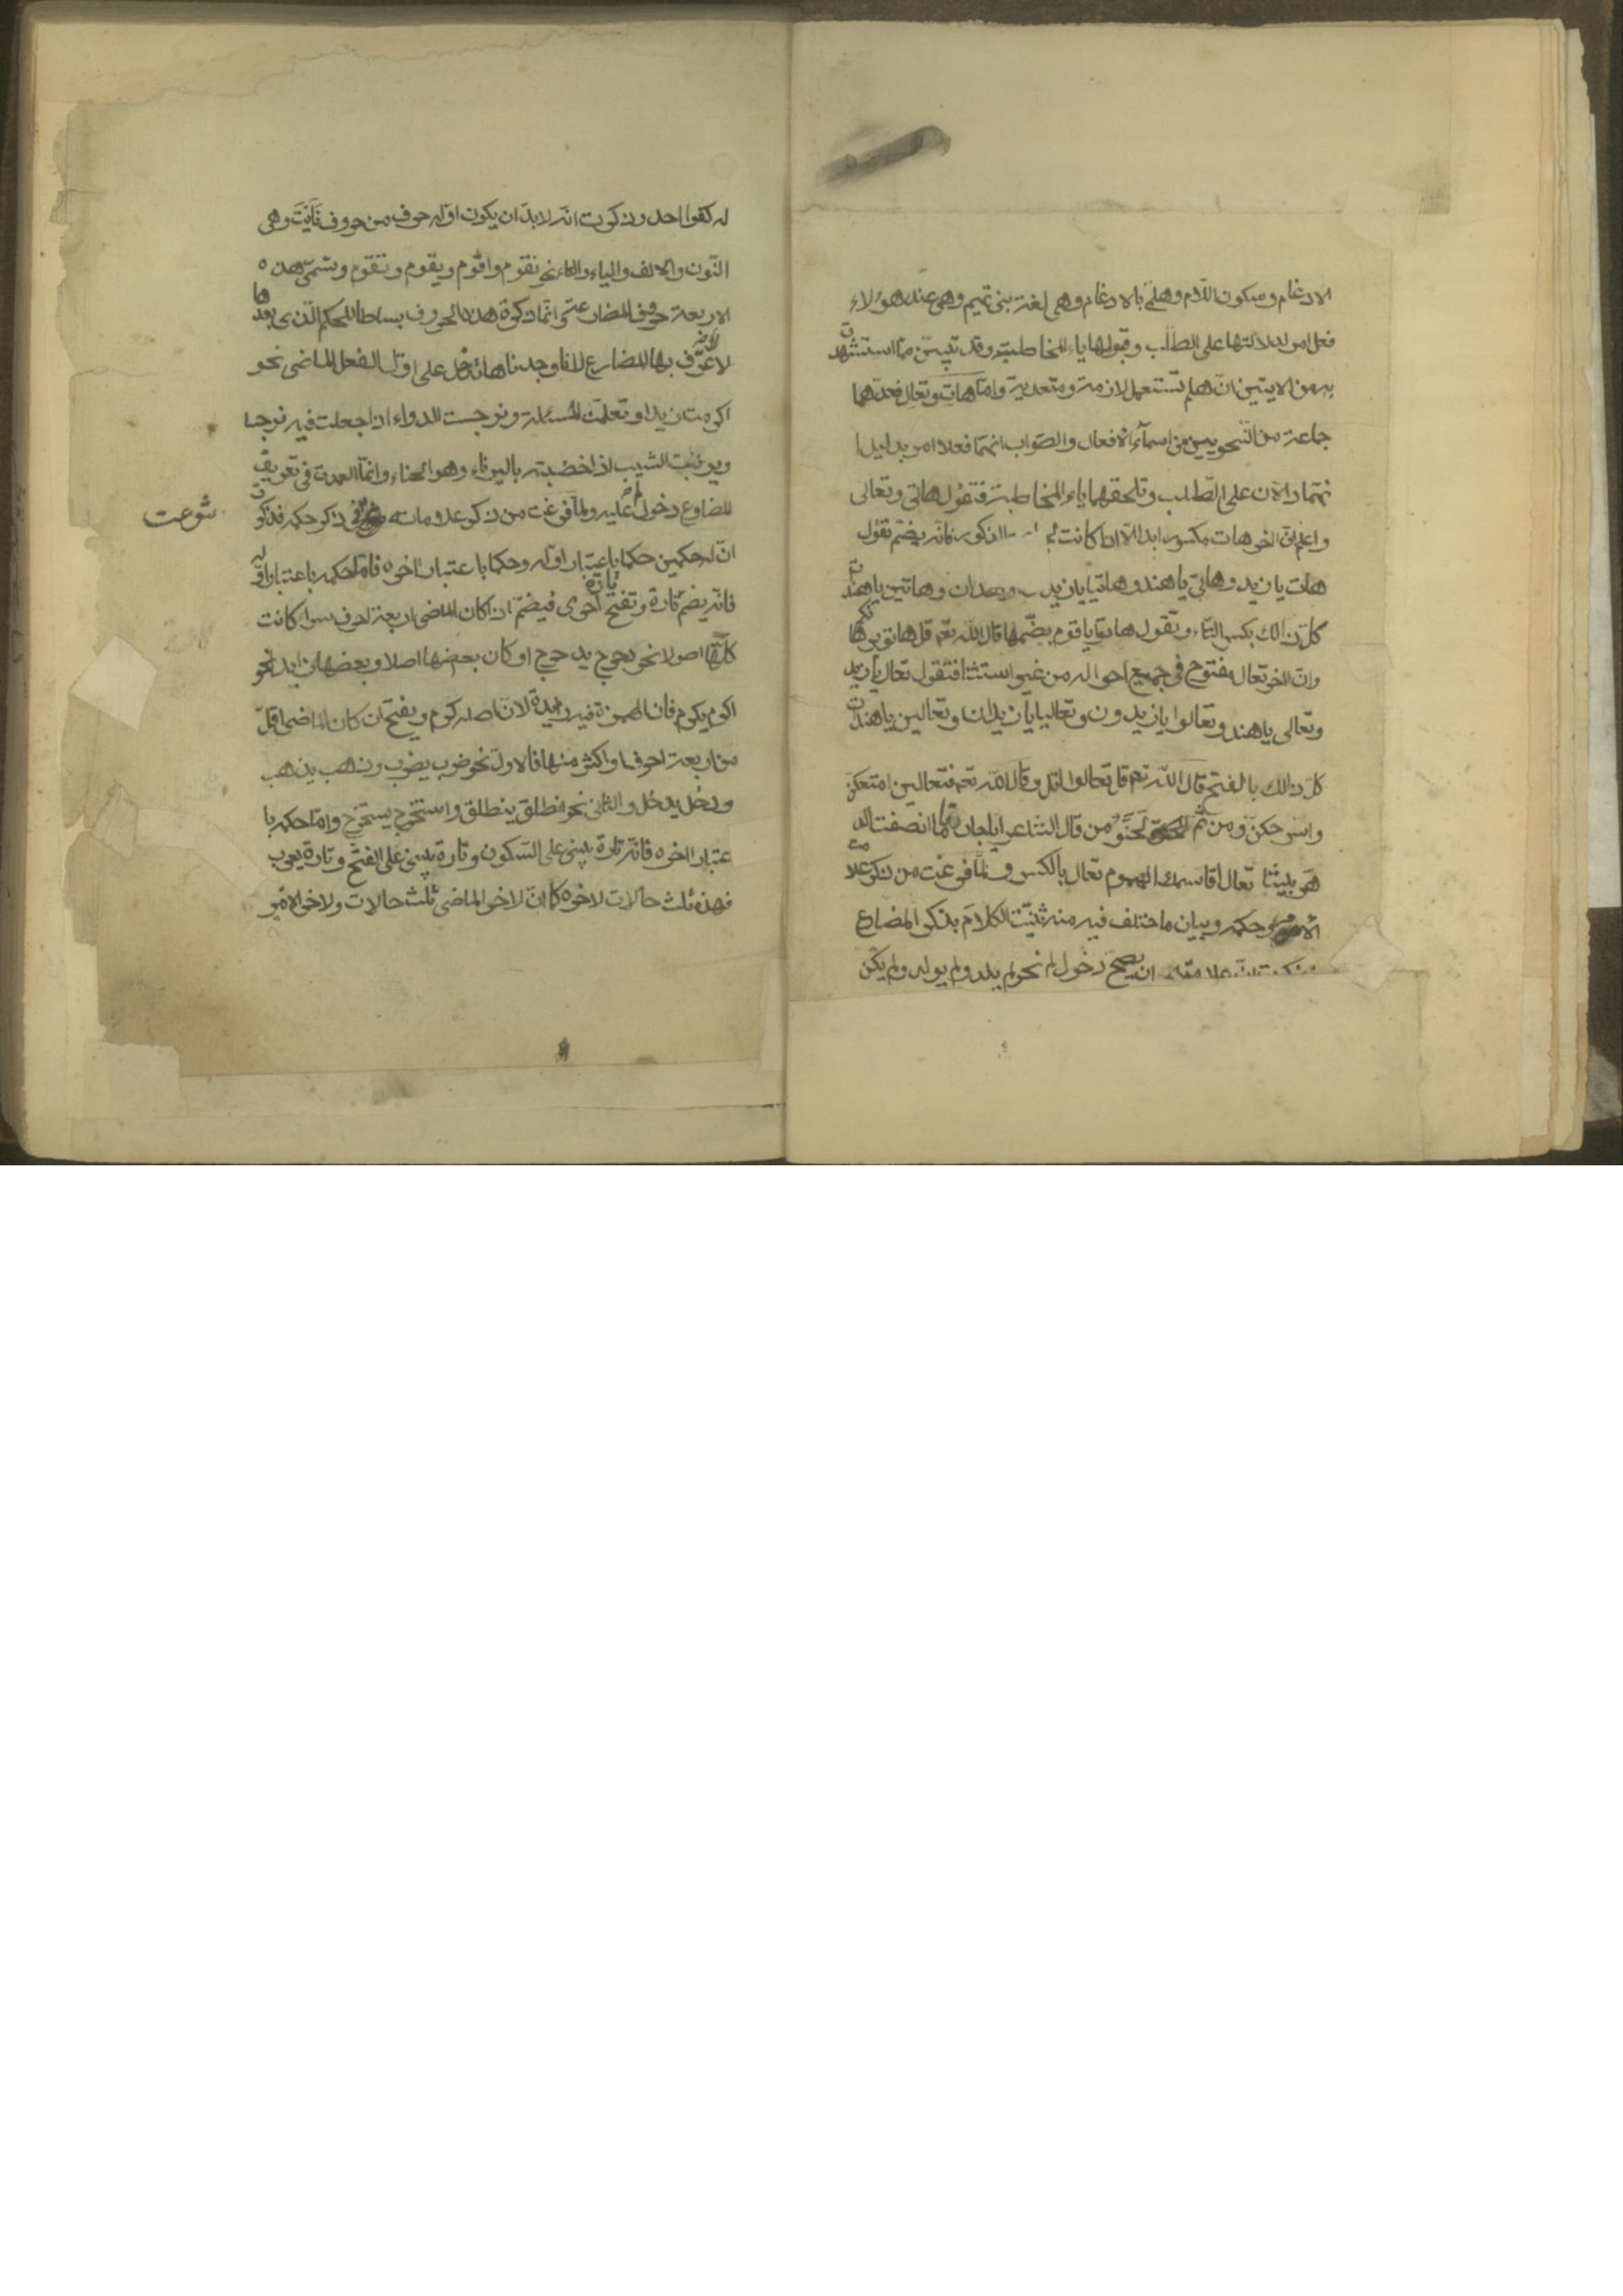 الادغام وسكون اللام وهلمّي بالادغام وهي لغة بني تميم وهي عند هؤلاء
فعل امر لدلالتها على الطلب وقبولها ياء المخاطبة وقد تبيّن ممّا استشهدت
به من الايتين انّ هلم تستعمل لازمة ومتعدية وامّا هات وتعال فعدّهما
جماعة من النحويين من اسماء الافعال والصّواب انهما فعلا امر بدليل ا
نهما دالان على الطّلب وتلحقهما ياء المخاطبة فتقول هاتي وتعالى
واعلم انّ اخر هات مكسور ابدا الّا ان كانت المذكور فانه يضمّ تقول
هات يا زيد وهاتي يا هند وهاتيا يا زيدان وهاتين يا هندات
كلّ ذالك بكسر التاء وتقول هاتوا يا قوم بضّمها قال الله تعم قل هاتو برهانكم
وانّ اخر تعال مفتوح في جميع احواله من غير استثنا فتقول تعال يا زيد
وتعالى يا هند وتعالوا يا زيدون وتعاليا يا زيدان وتعالين يا هندات
كلّ ذالك بالفتح قال الله تعم قل تعالوا اتل وقال الله تعم فتعالين امتعكنّ
واسرحكنّ ومن ثم لحّنو من قال الشاعر ايا جارتا ما انصفت الد
هر بيننا تعال اقاسمك الهموم تعال بالكسر ولمّا فرغت من ذكر علامت
الامر وحكمه وبيان ما اختلف فيه منه ثنّيت الكلام بذكر المضارع
ان يصح دخول لم نحو لم يلد ولم يولد ولم يكن
له كفوا احد وذكرت انّه لا بدّ ان يكون اوّله حرف من حروف نَأَيْتَ وهي
النّون والالف والياء والتاء نحو نقوم واقوم ويقوم وتقوم وتسمّى هذه
الاربعة حروف المضارعة وانّما ذكرة هذه الحروف بساطا للحكم الّذي بعدها
لا لانه عرّف بها المضارع لانا وجدناها تدخل على اوّل الفعل الماضي نحو
اكرمت زيدا وتعلمت المسئلة ونرجست الدواء اذا جعلت فيه نرجسا
ويرنئت الشيب اذا خضبته باليرناء وهو الحناء وانّما العمدة في تعريف
المضارع دخول لم عليه ولمّا فرغت من ذكر علاماته في ذكر حكمه فذكرت
شرعت
انّ له حكمين حكما باعتبار اوّله وحكما باعتبار اخره فامّا حكمه باعتبار اوّله
فانّه يضم تارة وتفتح تارة اخرى فيضمّ ان كان الماضي اربعة احرف سوا كانت
كلّها اصولا نحو دحرج يدحرج او كان بعضها اصلا وبعضها زايد نحو
اكرم يكرم فان الهمزة فيه زايدة لانّ اصله كرم ويفتح ان كان الماضي اقلّ
من اربعة احرف او اكثر منها فالاول نحو ضرب يضرب وذهب يذهب
ودخل يدخل والثاني نحو انطلق ينطلق واستخرج يستخرج وامّا حكمه با
عتبار اخره فانّه تارة يبني على السّكون وتارة يبني على الفتح وتارة يعرب
فهذه ثلث حالات لاخره كما انّ لاخر الماضي ثلث حالات ولاخر الامر